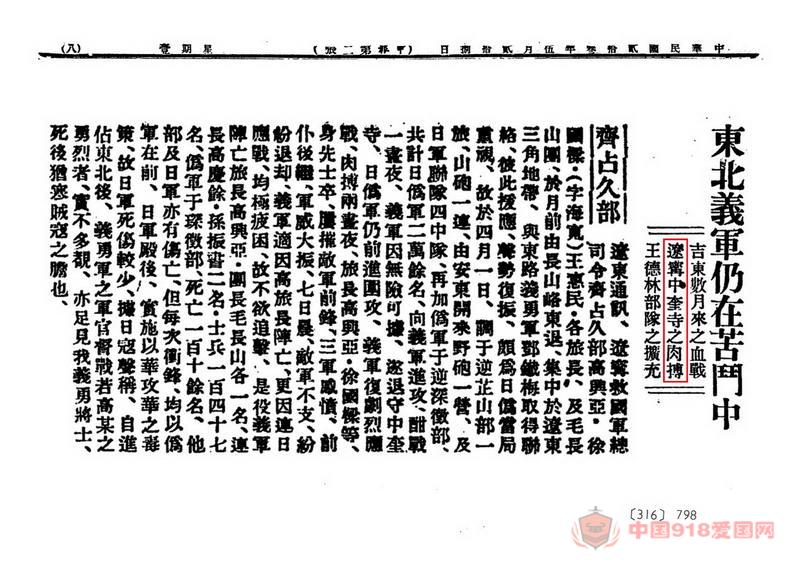 中華民國貳拾叁年伍月貳拾捌日
（申報第二張）
星期壹
（八）
東北義軍仍在苦鬥中
吉東數月來之血戰
遼寧中奎寺之肉搏
王德林部隊之擴充
齊占久部
遼東通訊、遼寧救國軍總
司令齊占久部高興亞·徐
國樑·（字海寬）王惠民·各旅長、及毛長
山團、於月前由長山峰東退、集中於遼東
三角地帶、與東路義勇軍鄧鐵梅取得聯
絡、彼此援應、聲勢復振、頗爲日僞當局
重視、故於四月一日、調于逆芷山部一
旅、山砲一連、由安東開來野砲一營、及
日軍聯隊四中隊、再加僞軍于逆深徵部、
共計日僞軍二萬餘名、向義軍進攻、酣戰
一晝夜、義軍因無險可據、遂退守中奎
寺、日僞軍仍前進圍攻、義軍復劇烈應
戰、肉搏兩晝夜、旅長高興亞·徐國樑等、
身先士卒、屢摧敵軍前鋒、三軍感憤、前
仆後繼、軍威大振、七日晨、敵軍不支、紛
紛退却、義軍適因高興亞陣亡、更因連日
應戰、均極疲困、故不欲追擊、是役義軍
陣亡旅長高興亞·團長毛長山各一名、連
長高慶餘·孫振書二名·士兵一百四十七
名、僞軍于琛徵部、死亡一百十餘名、他
部及日軍亦有傷亡、但每次衝鋒、均以僞
軍在前、日軍殿後、實施以華攻華之毒
策、故日軍死傷較少、據日寇聲稱、自進
佔東北後、義勇軍之軍官督戰若高某之
勇烈者、實不多覯、亦足見我義勇將士、
死後猶寒賊寇之膽也、
〔316〕 798
中国918爱国网